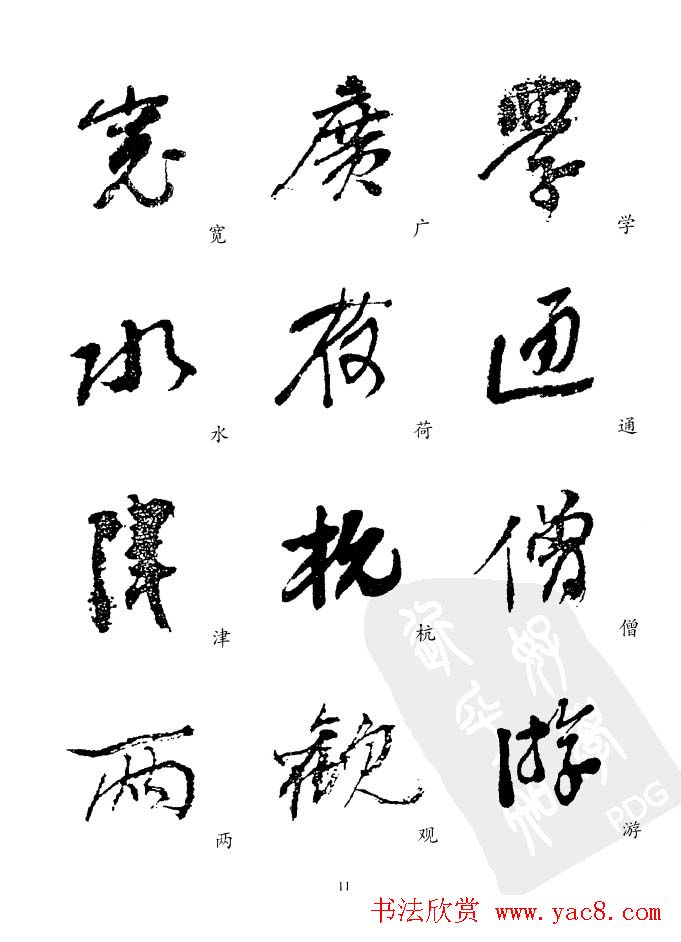 寛 廣 學
宽 广 学
水 荷 通
水 荷 通
津 杭 僧
津 杭 僧
两 観 游
两 观 游
PDG
11
书法欣赏 www.yac8.com